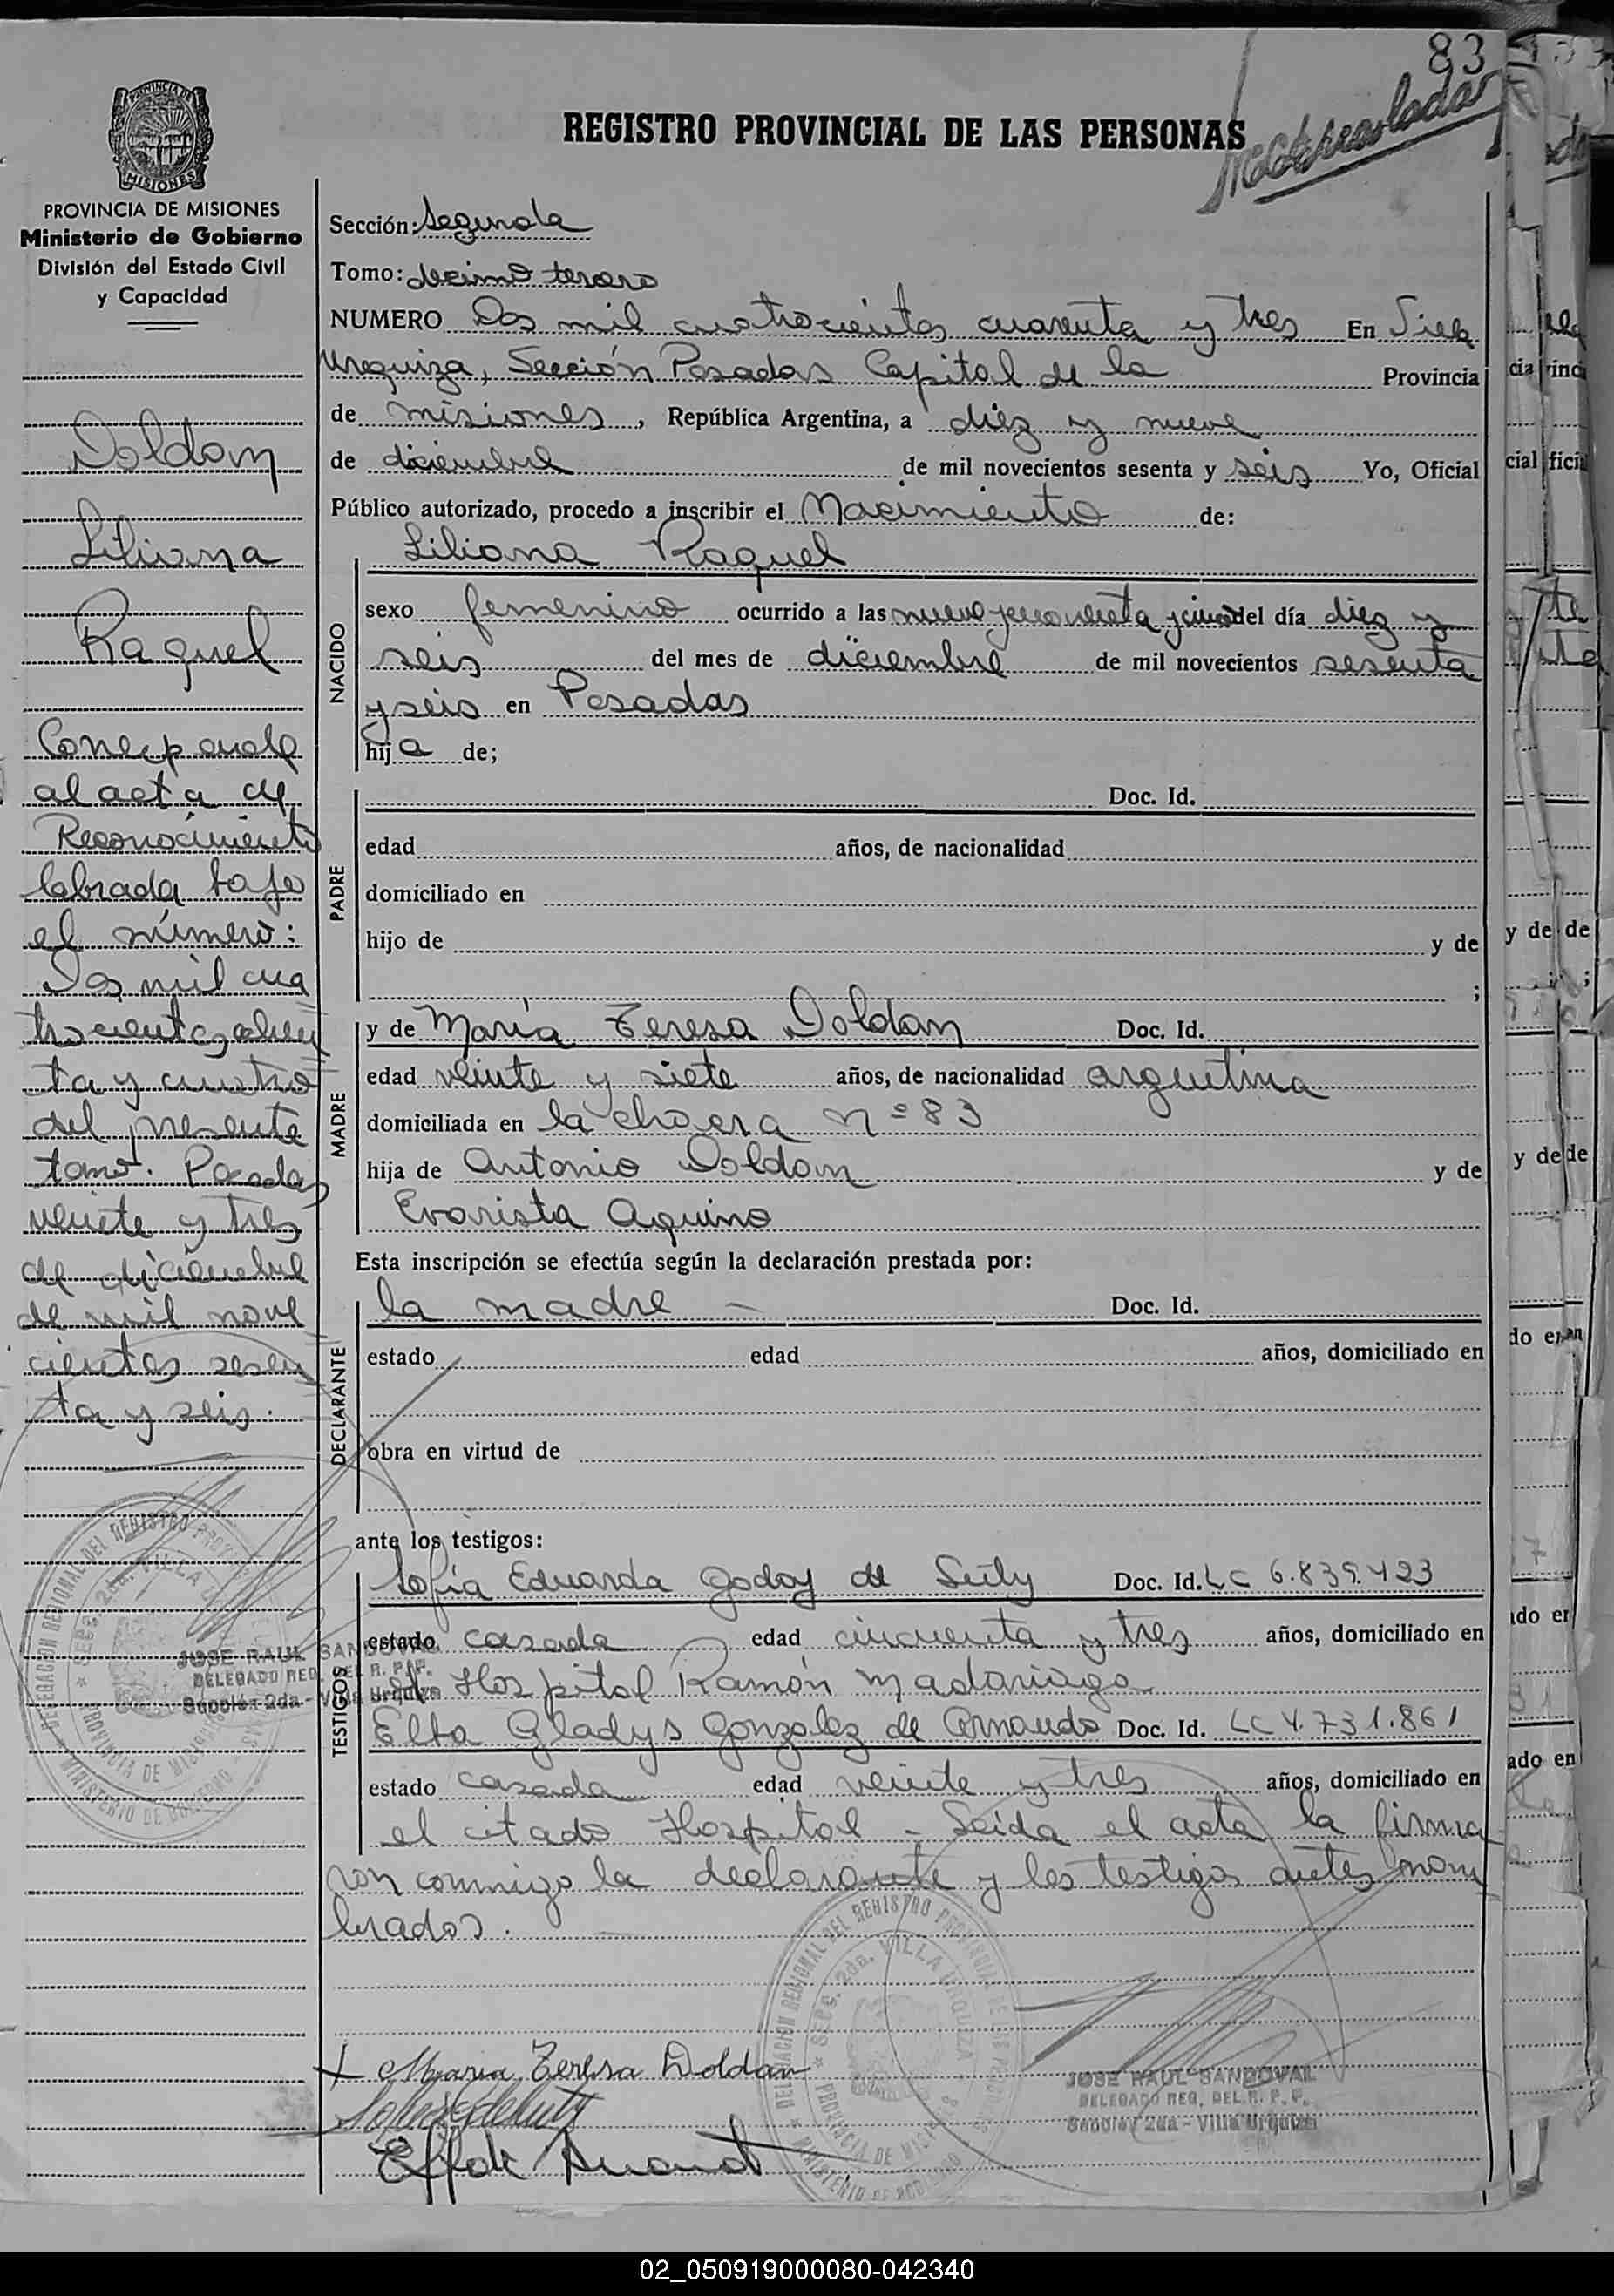 83
REGISTRO PROVINCIAL DE LAS PERSONAS
PROVINCIA DE MISIONES
PROVINCIA DE MISIONES
Ministerio de Gobierno
División del Estado Civil
y Capacidad
Doldan
Liliana
Raquel
Corresponde
al acta de
Reconocimiento
labrada bajo
el número:
Dos mil cua
trocientos ochen
ta y cuatro
del presente
tomo. Posadas
veinte y tres
de diciembre
de mil nove
cientos sesen
ta y seis.
Sección: Segunda
Tomo: decimo tercero
NUMERO Dos mil cuatrocientos cuarenta y tres En Villa
Urquiza, Sección Posadas Capital de la Provincia
de misiones, República Argentina, a diez y nueve
de diciembre de mil novecientos sesenta y seis Yo, Oficial
Público autorizado, procedo a inscribir el Nacimiento de:
Liliana Raquel
NACIDO
sexo femenino ocurrido a las nueve y cincuenta y cinco del día diez y
seis del mes de diciembre de mil novecientos sesenta
y seis en Posadas
hija de;
PADRE
Doc. Id.
edad años, de nacionalidad
domiciliado en
hijo de y de
;
MADRE
y de María Teresa Doldan Doc. Id.
edad veinte y siete años, de nacionalidad argentina
domiciliada en la chacra nº 83
hija de Antonio Doldan y de
Evarista Aquino
Esta inscripción se efectúa según la declaración prestada por:
DECLARANTE
la madre - Doc. Id.
estado edad años, domiciliado en
obra en virtud de
ante los testigos:
TESTIGOS
Sofía Eduarda Godoy de Doc. Id. LC 6.839.423
estado casada edad cincuenta y tres años, domiciliado en
Hospital Ramón Madariaga
Elba Gladys Gonzalez de Armando Doc. Id. LC 4.731.861
estado casada edad veinte y tres años, domiciliado en
el citado Hospital - Leída el acta la firma
ron conmigo la declarante y los testigos antes nom
brados.
DELEGACION REGIONAL DEL REGISTRO PROVINCIAL DE LAS PERSONAS
Secc. 2da. VILLA URQUIZA
PROVINCIA DE MISIONES
MINISTERIO DE GOBIERNO
JOSE RAUL SANDOVAL
DELEGADO REG. DEL R. P. P.
Sección 2da - Villa Urquiza
Maria Teresa Doldan
JOSE RAUL SANDOVAL
DELEGADO REG. DEL R. P. P.
Sección 2da - Villa Urquiza
02_050919000080-042340